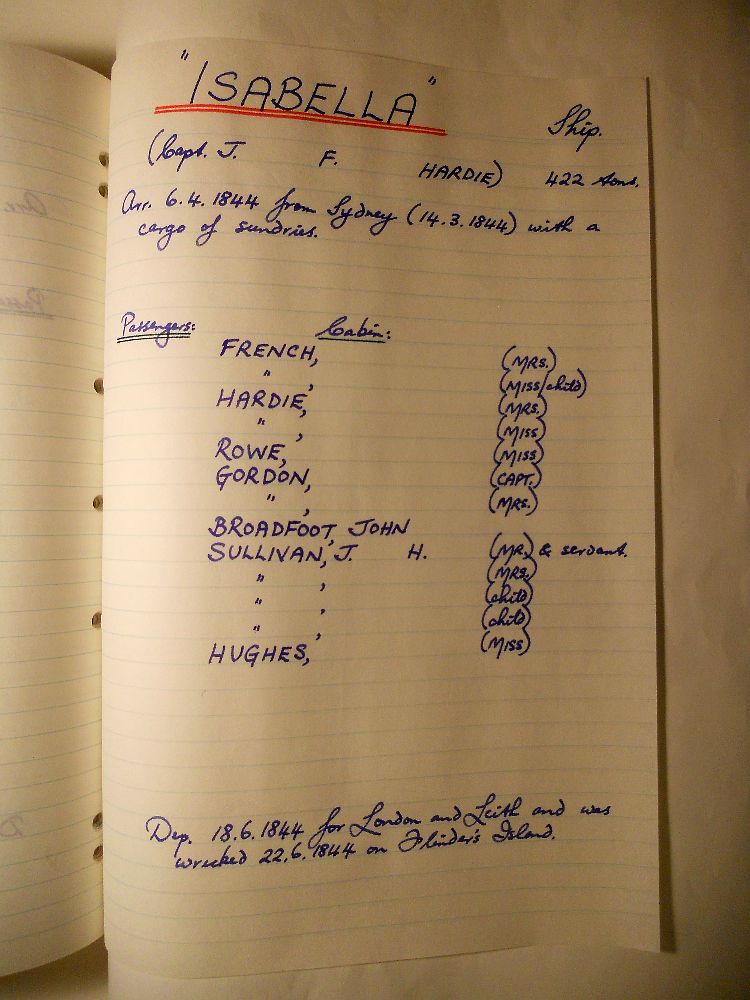 "ISABELLA"
Ship.
(Capt. J. F. HARDIE) 422 tons.
Arr. 6.4.1844 from Sydney (14.3.1844) with a
cargo of sundries.
Passengers: Cabin:
FRENCH, (MRS.)
" , (MISS/child)
HARDIE, (MRS.)
" , (MISS)
ROWE, (MISS)
GORDON, (CAPT.)
" , (MRS.)
BROADFOOT, JOHN
SULLIVAN, J. H. (MR.) & servant.
" , (MRS.)
" , (child)
" , (child)
HUGHES, (MISS)
Dep. 18.6.1844 for London and Leith and was
wrecked 22.6.1844 on Flinder's Island.